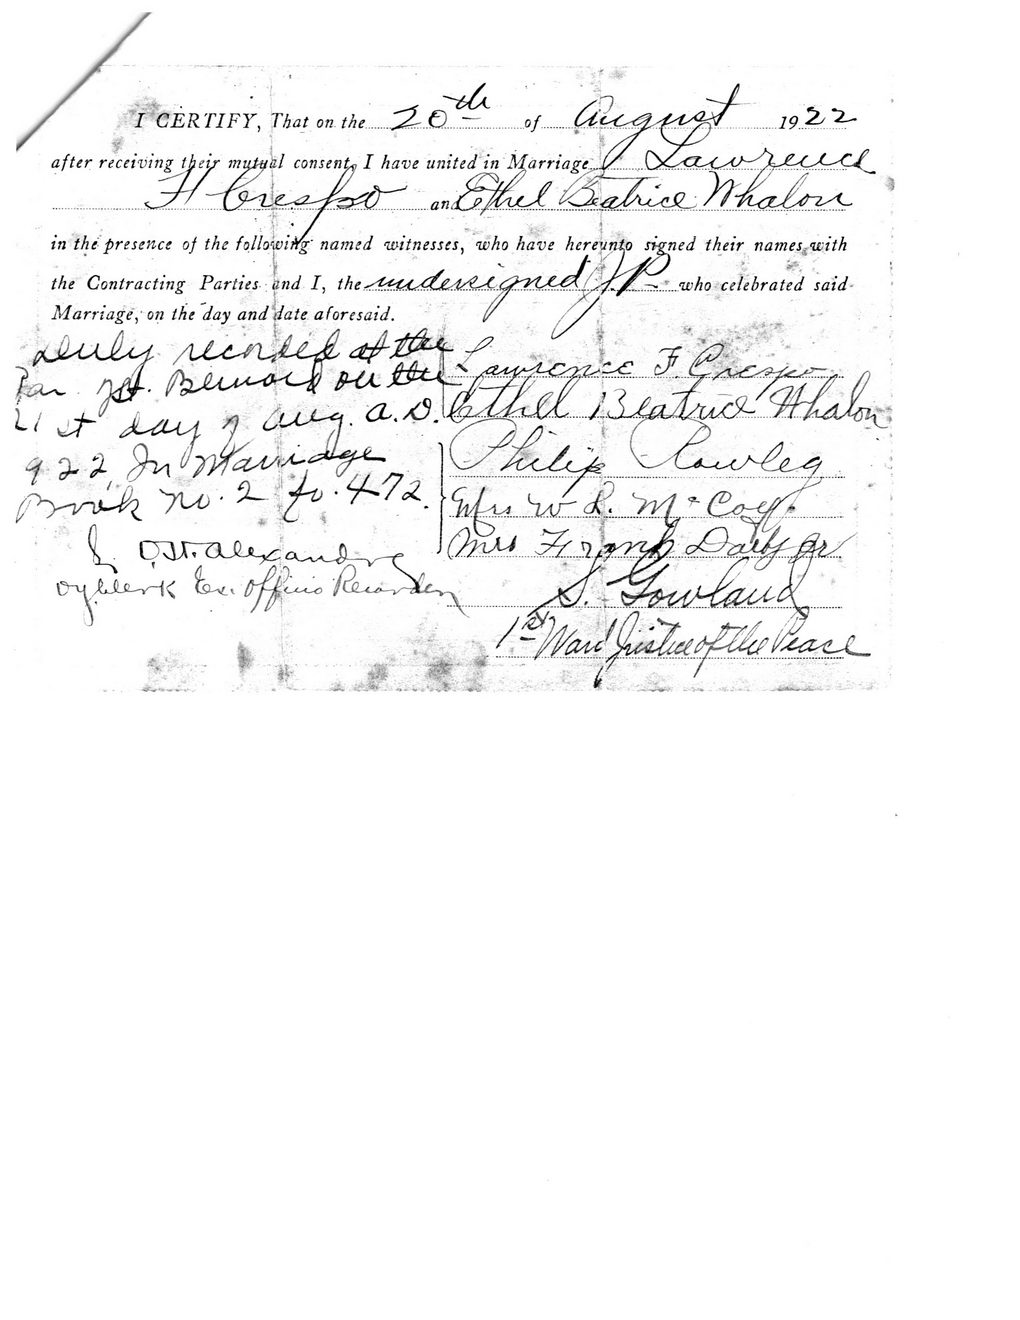 I CERTIFY, That on the 20th of August 1922
after receiving their mutual consent, I have united in Marriage Lawrence
F Crespo and Ethel Beatrice Whalon
in the presence of the following named witnesses, who have hereunto signed their names with
the Contracting Parties and I, the undersigned J.P. who celebrated said
Marriage, on the day and date aforesaid.
Duly recorded at the
Par of St. Bernard on the
21st day of Aug. A.D.
922, In Marriage
Book No. 2 fo. 472.
St. Alexandre
Dy Clerk Ex. Officio Recorder
Lawrence F. Crespo
Ethel Beatrice Whalon
Philip Rowley
Mrs W L. McCoy.
Mrs Frank Jr
S. Gowland
1st Ward Justice of the Peace